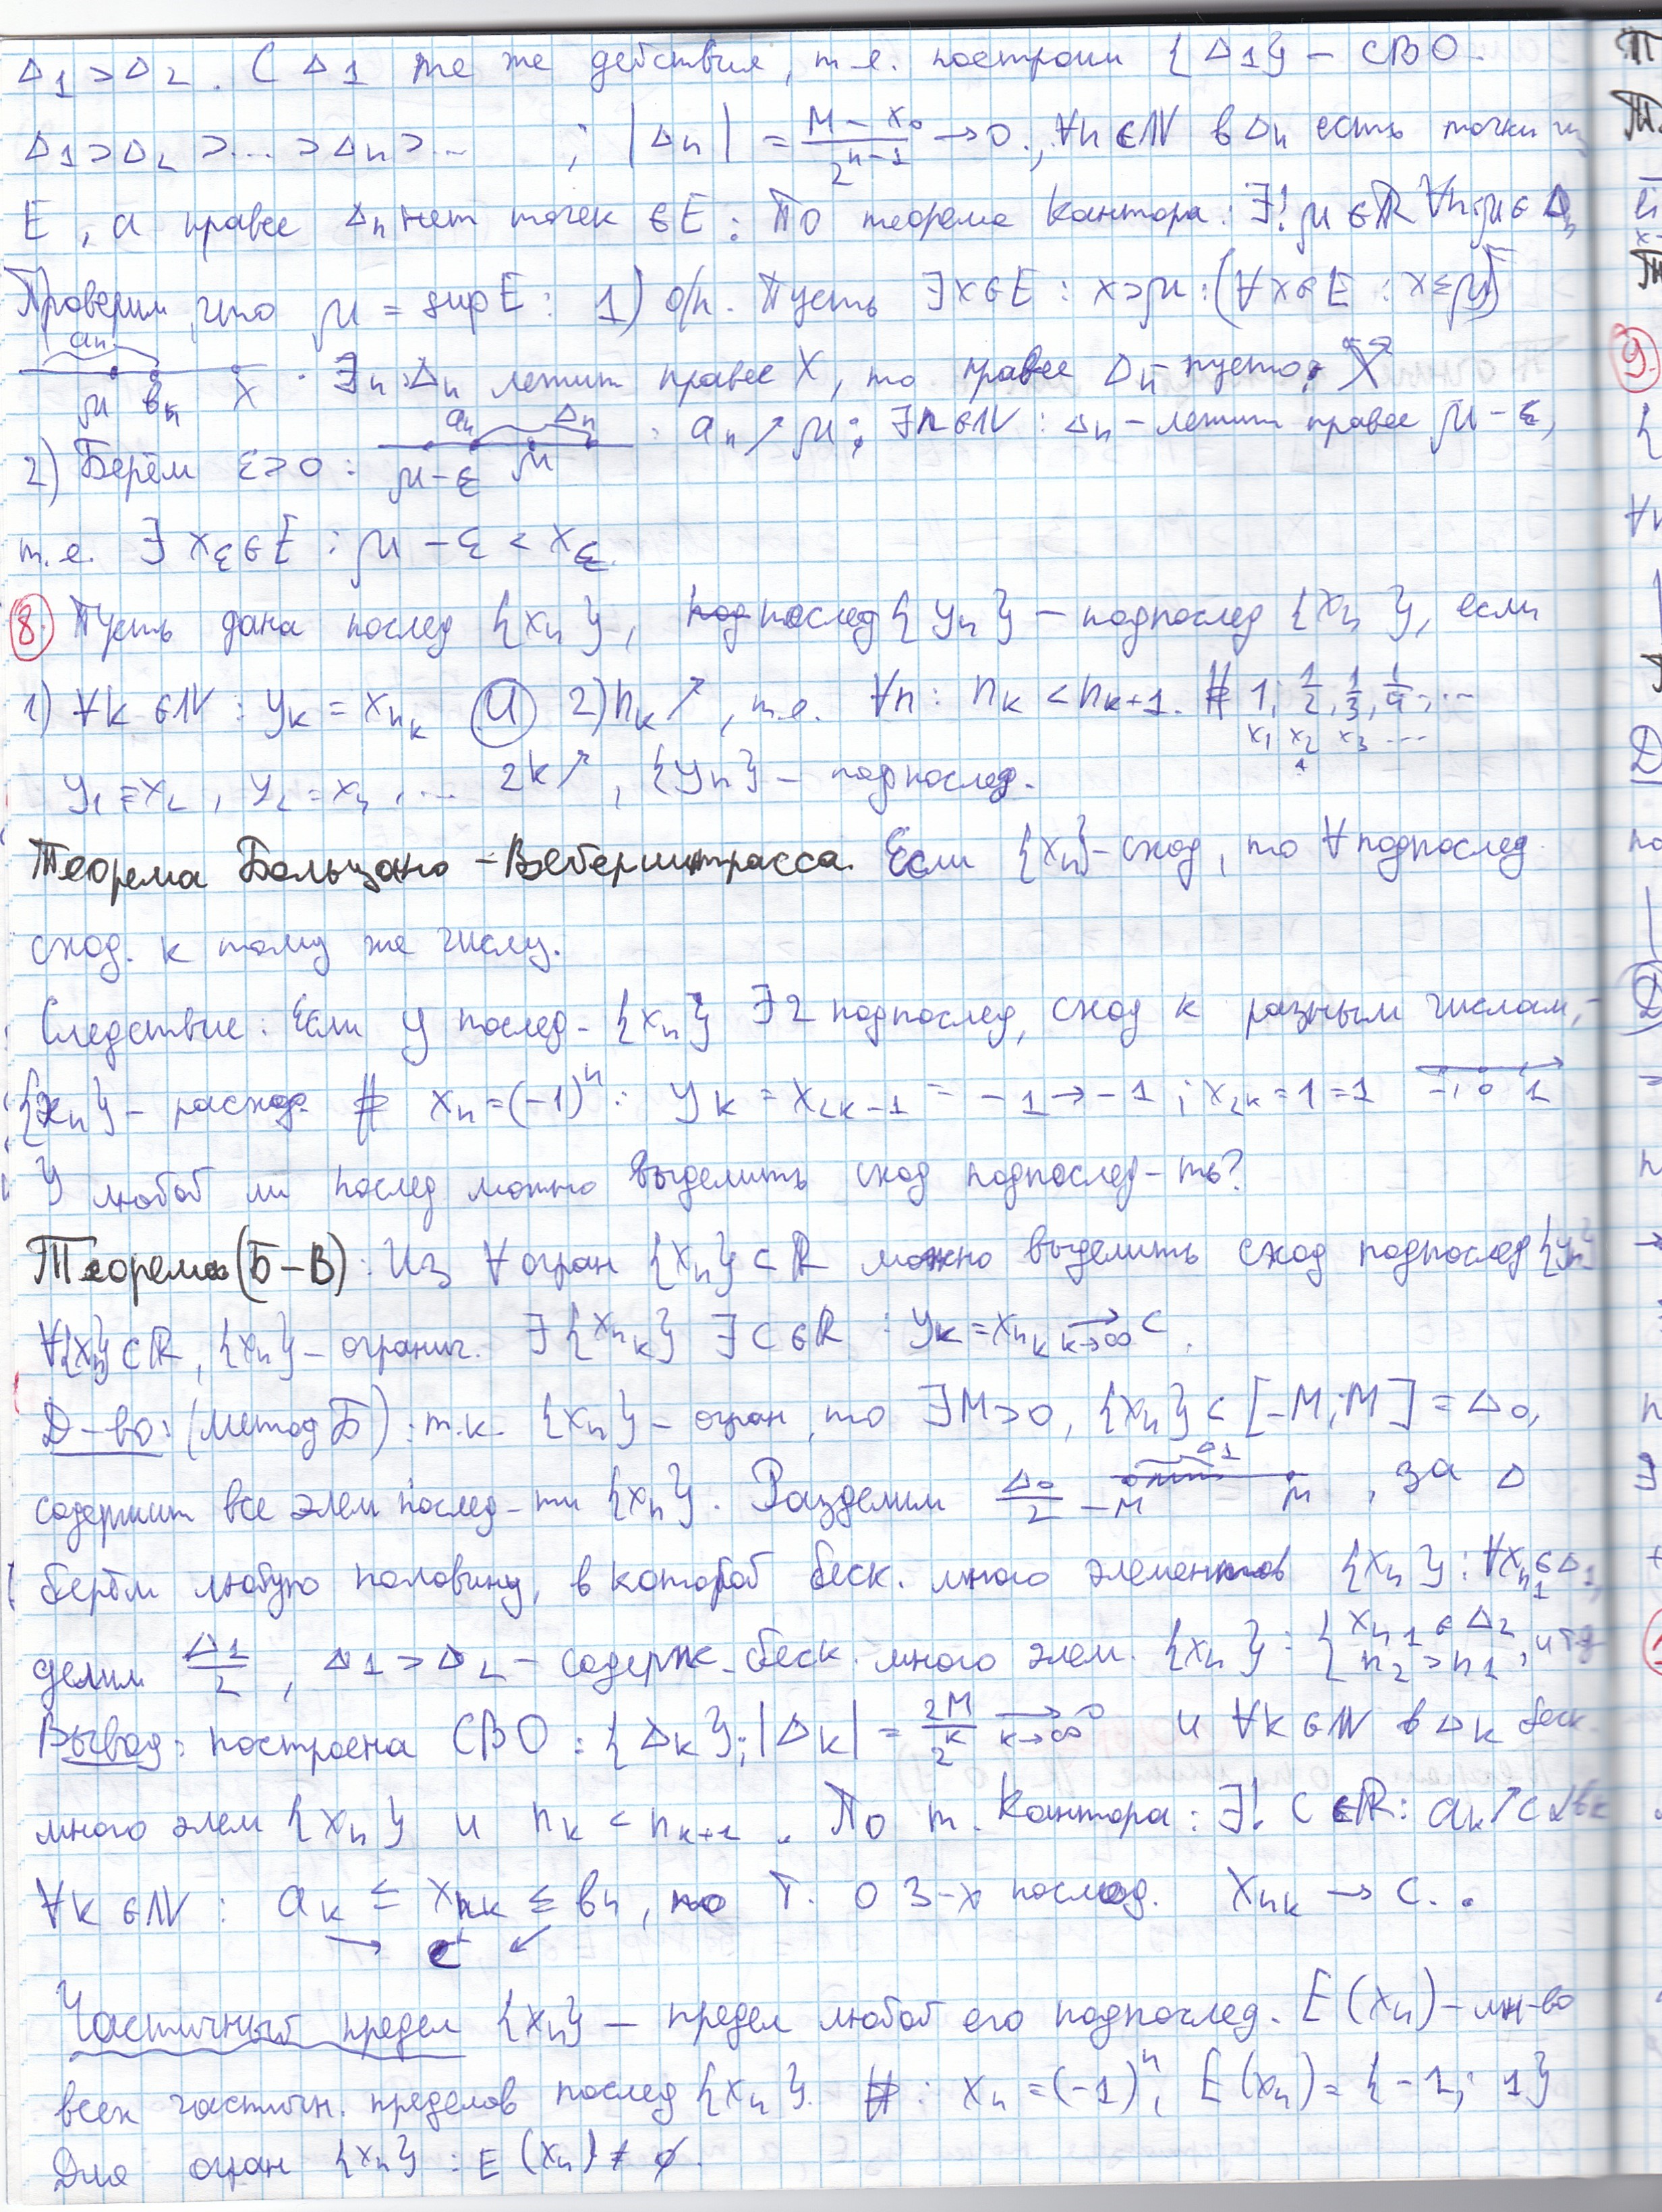 Δ1 > Δ2. С Δ1 те же действия, т.е. построим {Δ1} – СВО.
Δ1 > Δ2 > ... > Δn > ... ; |Δn| = (M – x0)/2^(n-1) → 0, ∀n ∈ N в Δn есть точки из
E, а правее Δn нет точек ∈ E. По теореме Кантора: ∃! μ ∈ R ∀n: μ ∈ Δn
Проверим что μ = sup E: 1) о/п. Пусть ∃x ∈ E : x > μ : (∀x ∈ E : x ≤ μ)
an
μ bn x . ∃n: Δn лежит правее X, то правее Δn – пусто; X
2) Берём ε > 0 : μ-ε an μ Δn : an ↗ μ; ∃n ∈ N : Δn – лежит правее μ – ε,
т.е. ∃ xε ∈ E : μ – ε < xε.
8. Пусть дана послед {xn}, послед {yn} – подпослед {xn}, если
1) ∀k ∈ N : yk = x_nk (И) 2) nk ↗, т.е. ∀n: nk < nk+1. # 1, 1/2, 1/3, 1/4, ...
x1 x2 x3 ...
y1 = x2, y2 = x4, ... 2k ↗, {yn} – подпослед.
Теорема Больцано – Веберштрасса. Если {xn} – сход, то ∀ подпослед
сход. к тому же числу.
Следствие: Если у послед – {xn} ∃ 2 подпослед, сход к разным числам, –
{xn} – расход. # xn = (-1)^n : yk = x2k-1 = -1 → -1 ; x2k = 1 = 1 -1 0 1
У любой ли послед можно выделить сход подпослед-ть?
Теорема (Б – В): Из ∀ огран {xn} ⊂ R можно выделить сход подпослед {yn}
∀{xn} ⊂ R, {xn} – огранич. ∃ {x_nk} ∃ C ∈ R : yk = x_nk → C, k→∞.
Д-во: (метод Б): т.к. {xn} – огран, то ∃ M > 0, {xn} ⊂ [-M; M] = Δ0,
содержит все элем послед-ти {xn}. Разделим Δ0/2 -M Δ1 M, за Δ
берём любую половину, в которой беск. много элементов {xn} : ∀x_n1 ∈ Δ1,
делим Δ1/2, Δ1 > Δ2 – содерж. беск. много элем. {xn} : { x_n1 ∈ Δ2, n2 > n1, и тд
Вывод: построена СВО : {Δk}; |Δk| = 2M/2^k → 0, k→∞ и ∀k ∈ N в Δk беск.
много элем {xn} и nk < nk+1. По т. Кантора : ∃! C ∈ R: ak ↗ C ↙ bk
∀k ∈ N : ak ≤ x_nk ≤ bn, по т. о 3-х послед. x_nk → C.
→ C ↙
Частичный предел {xn} – предел любой его подпослед. E(xn) – мн-во
всех частичн. пределов послед {xn}. #: xn = (-1)^n, E(xn) = {-1; 1}
Для огран {xn} : E(xn) ≠ ∅.
9.